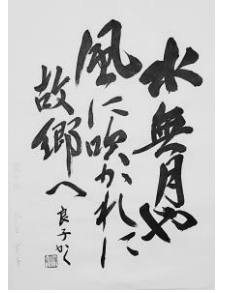 水無月や
風に吹かれに
故郷へ
良子かく